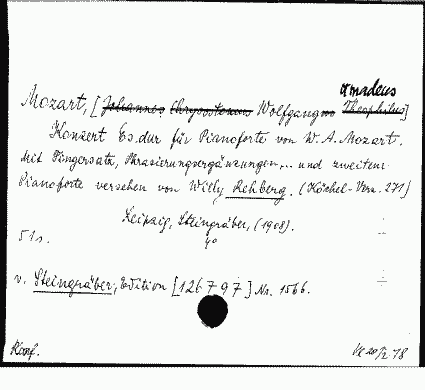 Amadeus
Mozart, [Johannes Chrysostomus Wolfgang Theophilus]
Konzert Es dur für Pianoforte von W. A. Mozart.
Mit Fingersatz, Phrasierungsergänzungen... und zweitem
Pianoforte versehen von Willy Rehberg. (Köchel-Verz. 271)
Leipzig, Steingräber, (1908).
4°
51 s.
v. Steingräber, Edition [126797] Nr. 1566.
Konf.